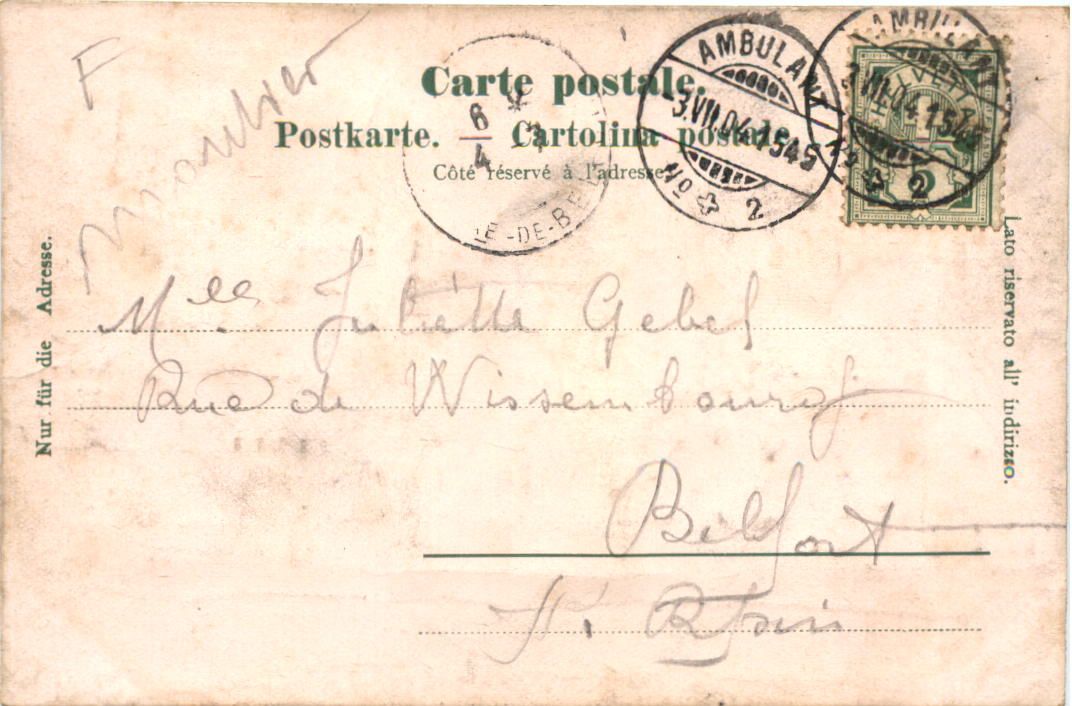 F
Moutier
Carte postale.
Postkarte. Cartolina postale.
Côté réservé à l'adresse.
AMBULANT
3.VII.04.1545
No 2
AMBULANT
3.VII.04.1545
No 2
HELVETIA
6 *
4
-DE-BE
Nur für die Adresse.
Lato riservato all' indirizzo.
Mlle Juliette Gebel
Rue de Wissembourg
Belfort
Ht Rhin